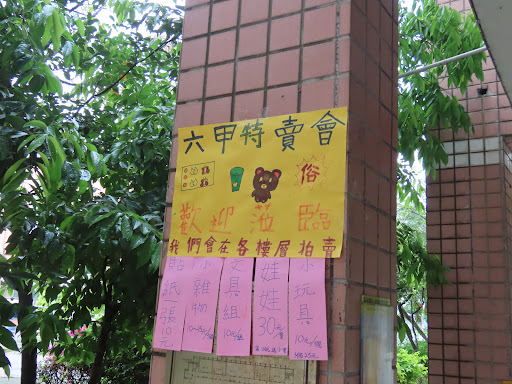 六甲特賣會
俗
歡迎蒞臨
我們會在各樓層拍賣
貼紙一張10元
小雜物
文具組
娃娃30元
小玩具